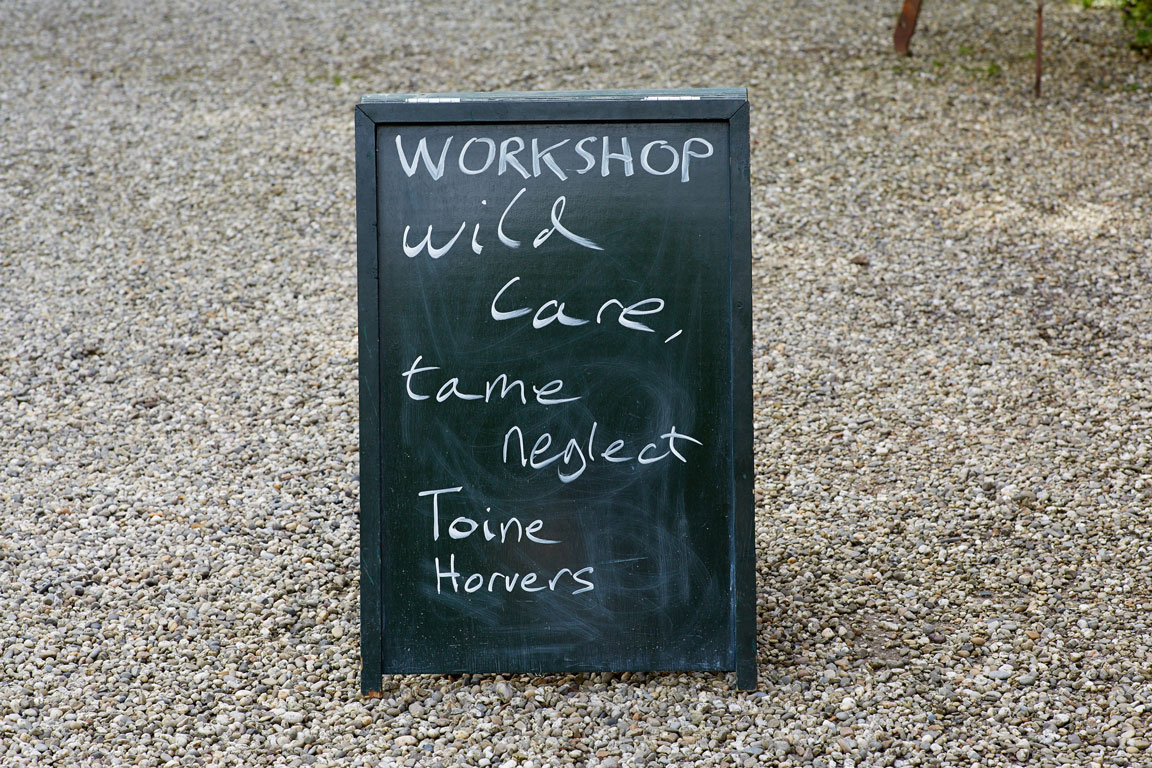 WORKSHOP
wild
care,
tame
neglect
Toine
Horvers